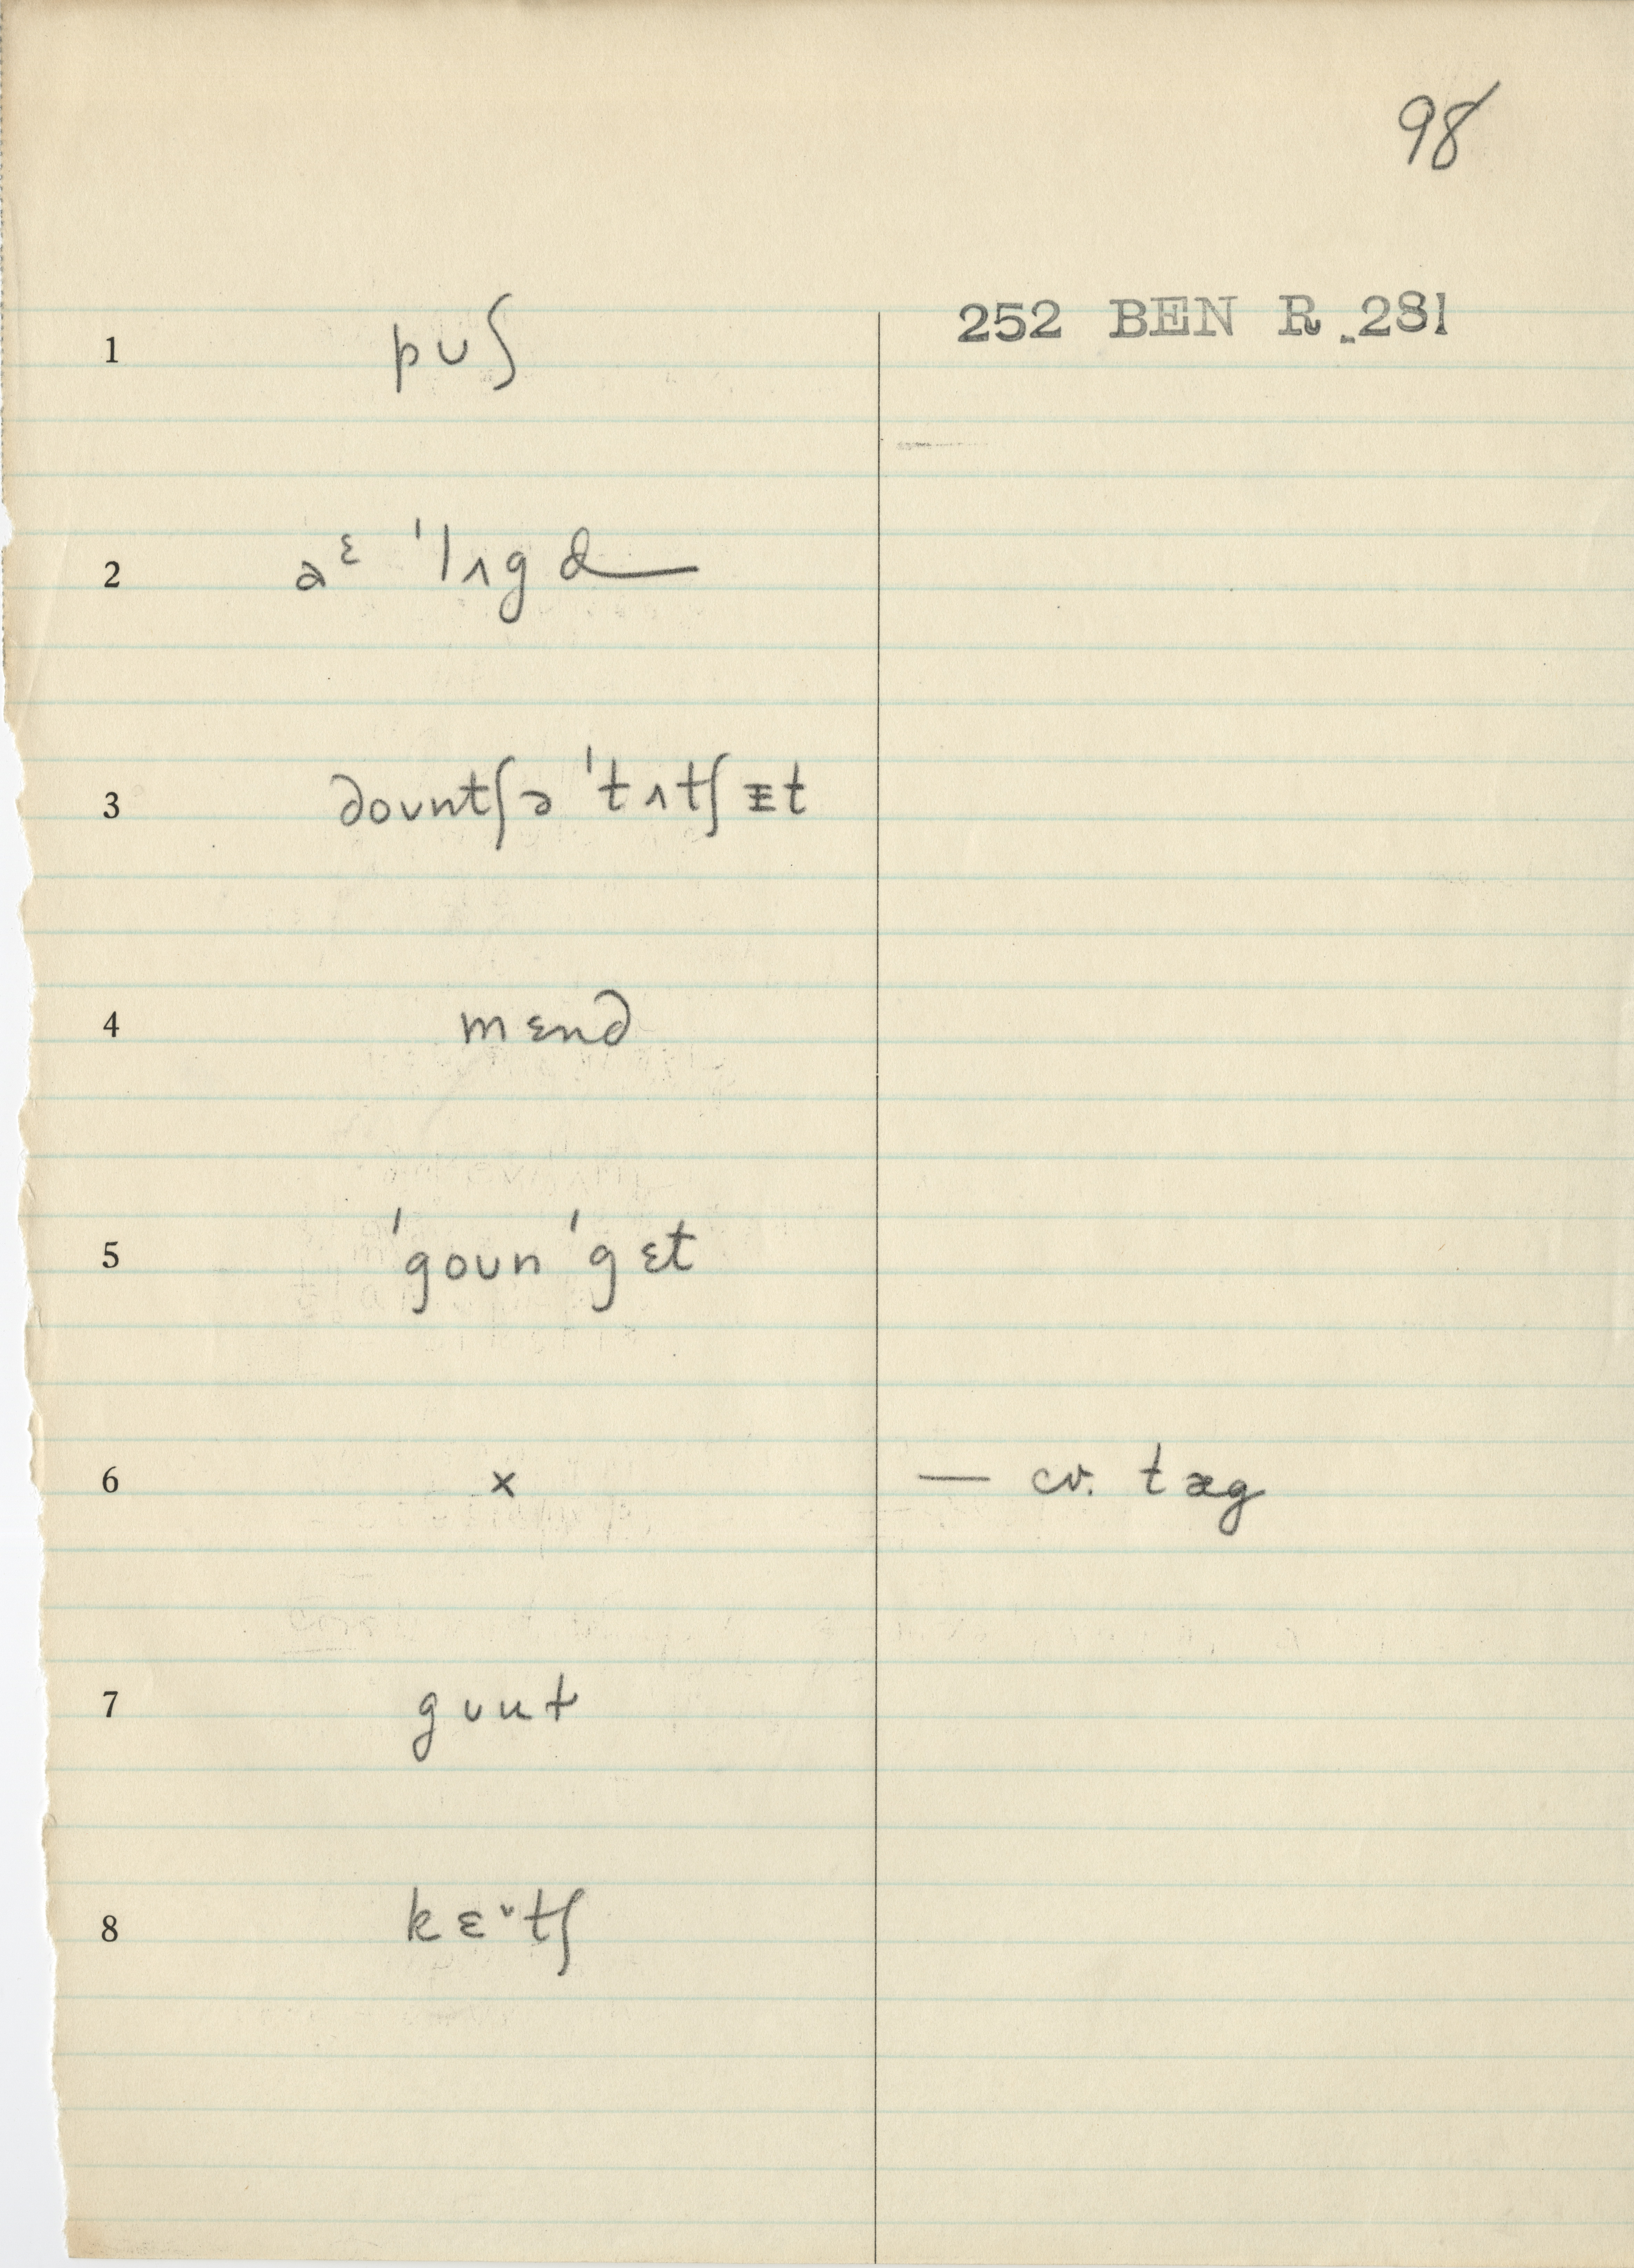 98
252 BEN R. 281
1 pʊʃ
2 aᵋ ˈlʌgd——
3 dountʃə ˈtʌtʃ ɪt
4 mɛnd
5 ˈgoun ˈgɛt
6 x — cv. tæg
7 gʊut
8 kɛ˅tʃ